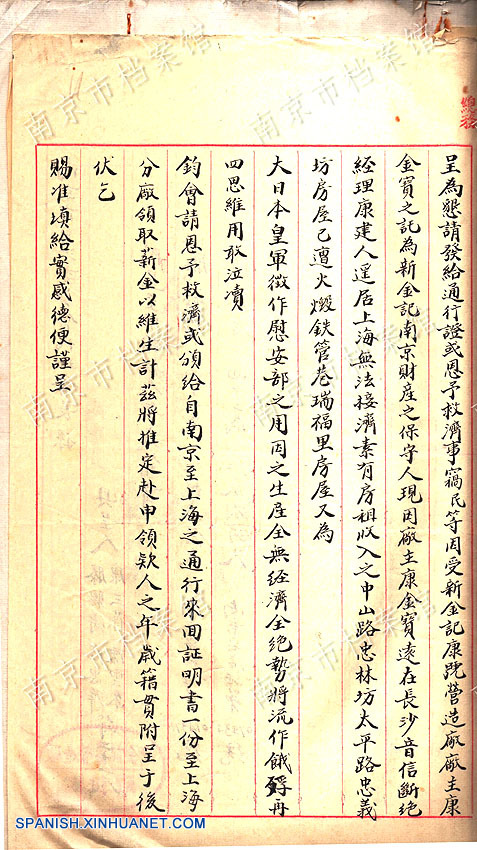 呈為懇請發給通行證或恩予救濟事竊民等因受新金記康號營造廠廠主康
金寶之託為新金記南京財產之保守人現因廠主康金寶遠在長沙音信斷絕
經理康建人逕居上海無法接濟素有房租收入之中山路忠林坊太平路忠義
坊房屋已遭火燬鉄管巷瑞福里房屋又為
大日本皇軍徵作慰安部之用因之生居全無經濟全絕勢將流作餓殍再
四思維用敢泣瀆
鈞會請恩予救濟或頒給自南京至上海之通行來回証明書一份至上海
分廠領取薪金以維生計茲將推定赴申領欵人之年歲籍貫附呈于後
伏乞
賜准填給實感德便謹呈
南京市档案馆
南京市档案馆
南京市档案馆
南京市档案馆
南京市档案馆
南京市档案馆
SPANISH.XINHUANET.COM